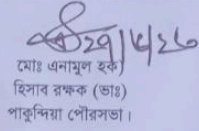 মোঃ এনামুল হক
হিসাব রক্ষক (ভাঃ)
পাকুন্দিয়া পৌরসভা।